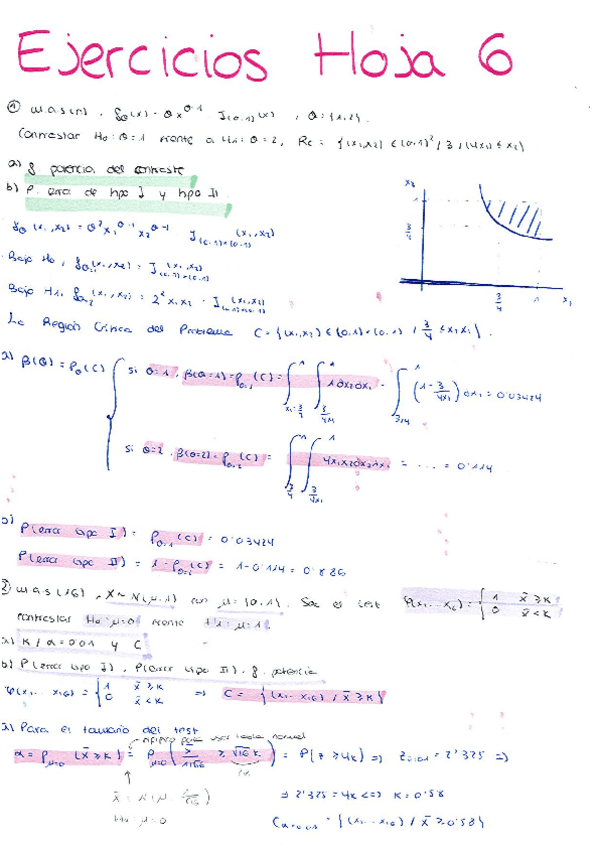 Ejercicios Hoja 6
① m.a.s(n), f_θ(x) = θ x^(θ-1) I_(0,1)(x), θ = {1,2}.
Contrastar H0: θ=1 frente a H1: θ=2, Rc = {(x1,x2) ∈ (0,1)² / 3/(4x1) ≤ x2}
a) f. potencia del contraste
b) P. error de tipo I y tipo II.
f_θ(x1,x2) = θ² x1^(θ-1) x2^(θ-1) I_(0,1)×(0,1)(x1,x2)
Bajo H0, f_θ=1(x1,x2) = I_(0,1)×(0,1)(x1,x2)
Bajo H1, f_θ=2(x1,x2) = 2² x1x2 · I_(0,1)×(0,1)(x1,x2)
x2
1
3/4
1
x1
La Región Crítica del Problema C = {(x1,x2) ∈ (0,1)×(0,1) / 3/4 ≤ x1x2}.
a) β(θ) = P_θ(C) { si θ=1, β(θ=1) = P_θ=1(C) = ∫_{x1=3/4}^1 ∫_{3/4x1}^1 1 dx2 dx1 = ∫_{3/4}^1 (1 - 3/4x1) dx1 = 0'03424
si θ=2, β(θ=2) = P_θ=2(C) = ∫_{3/4}^1 ∫_{3/4x1}^1 4x1x2 dx2 dx1 = .... = 0'114
b) P(error tipo I) = P_θ=1(C) = 0'03424
P(error tipo II) = 1 - P_θ=2(C) = 1-0'114 = 0'886
② m.a.s(16), X~N(μ,1) con μ={0,1}. Sea el test φ(x1,...x16) = { 1 x̄ ≥ K
0 x̄ < K
contrastar H0: μ=0 frente H1: μ=1.
a) K / α=0'01 y C
b) P(error tipo I), P(error tipo II), f. potencia
φ(x1,... x16) = { 1 x̄ ≥ K
0 x̄ < K ⇒ C = {(x1,... x16) / x̄ ≥ K}
a) Para el tamaño del test
tipifico para usar tabla normal
α = P_μ=0(x̄ ≥ K) = P_μ=0(x̄/(1/√16) ≥ √16 K) = P(Z ≥ 4K) ⇒ Z0'01 = 2'325 ⇒
H0: μ=0
⇒ 2'325 = 4K ⇔ K = 0'58
C α=0'01 = {(x1,... x16) / x̄ ≥ 0'58}